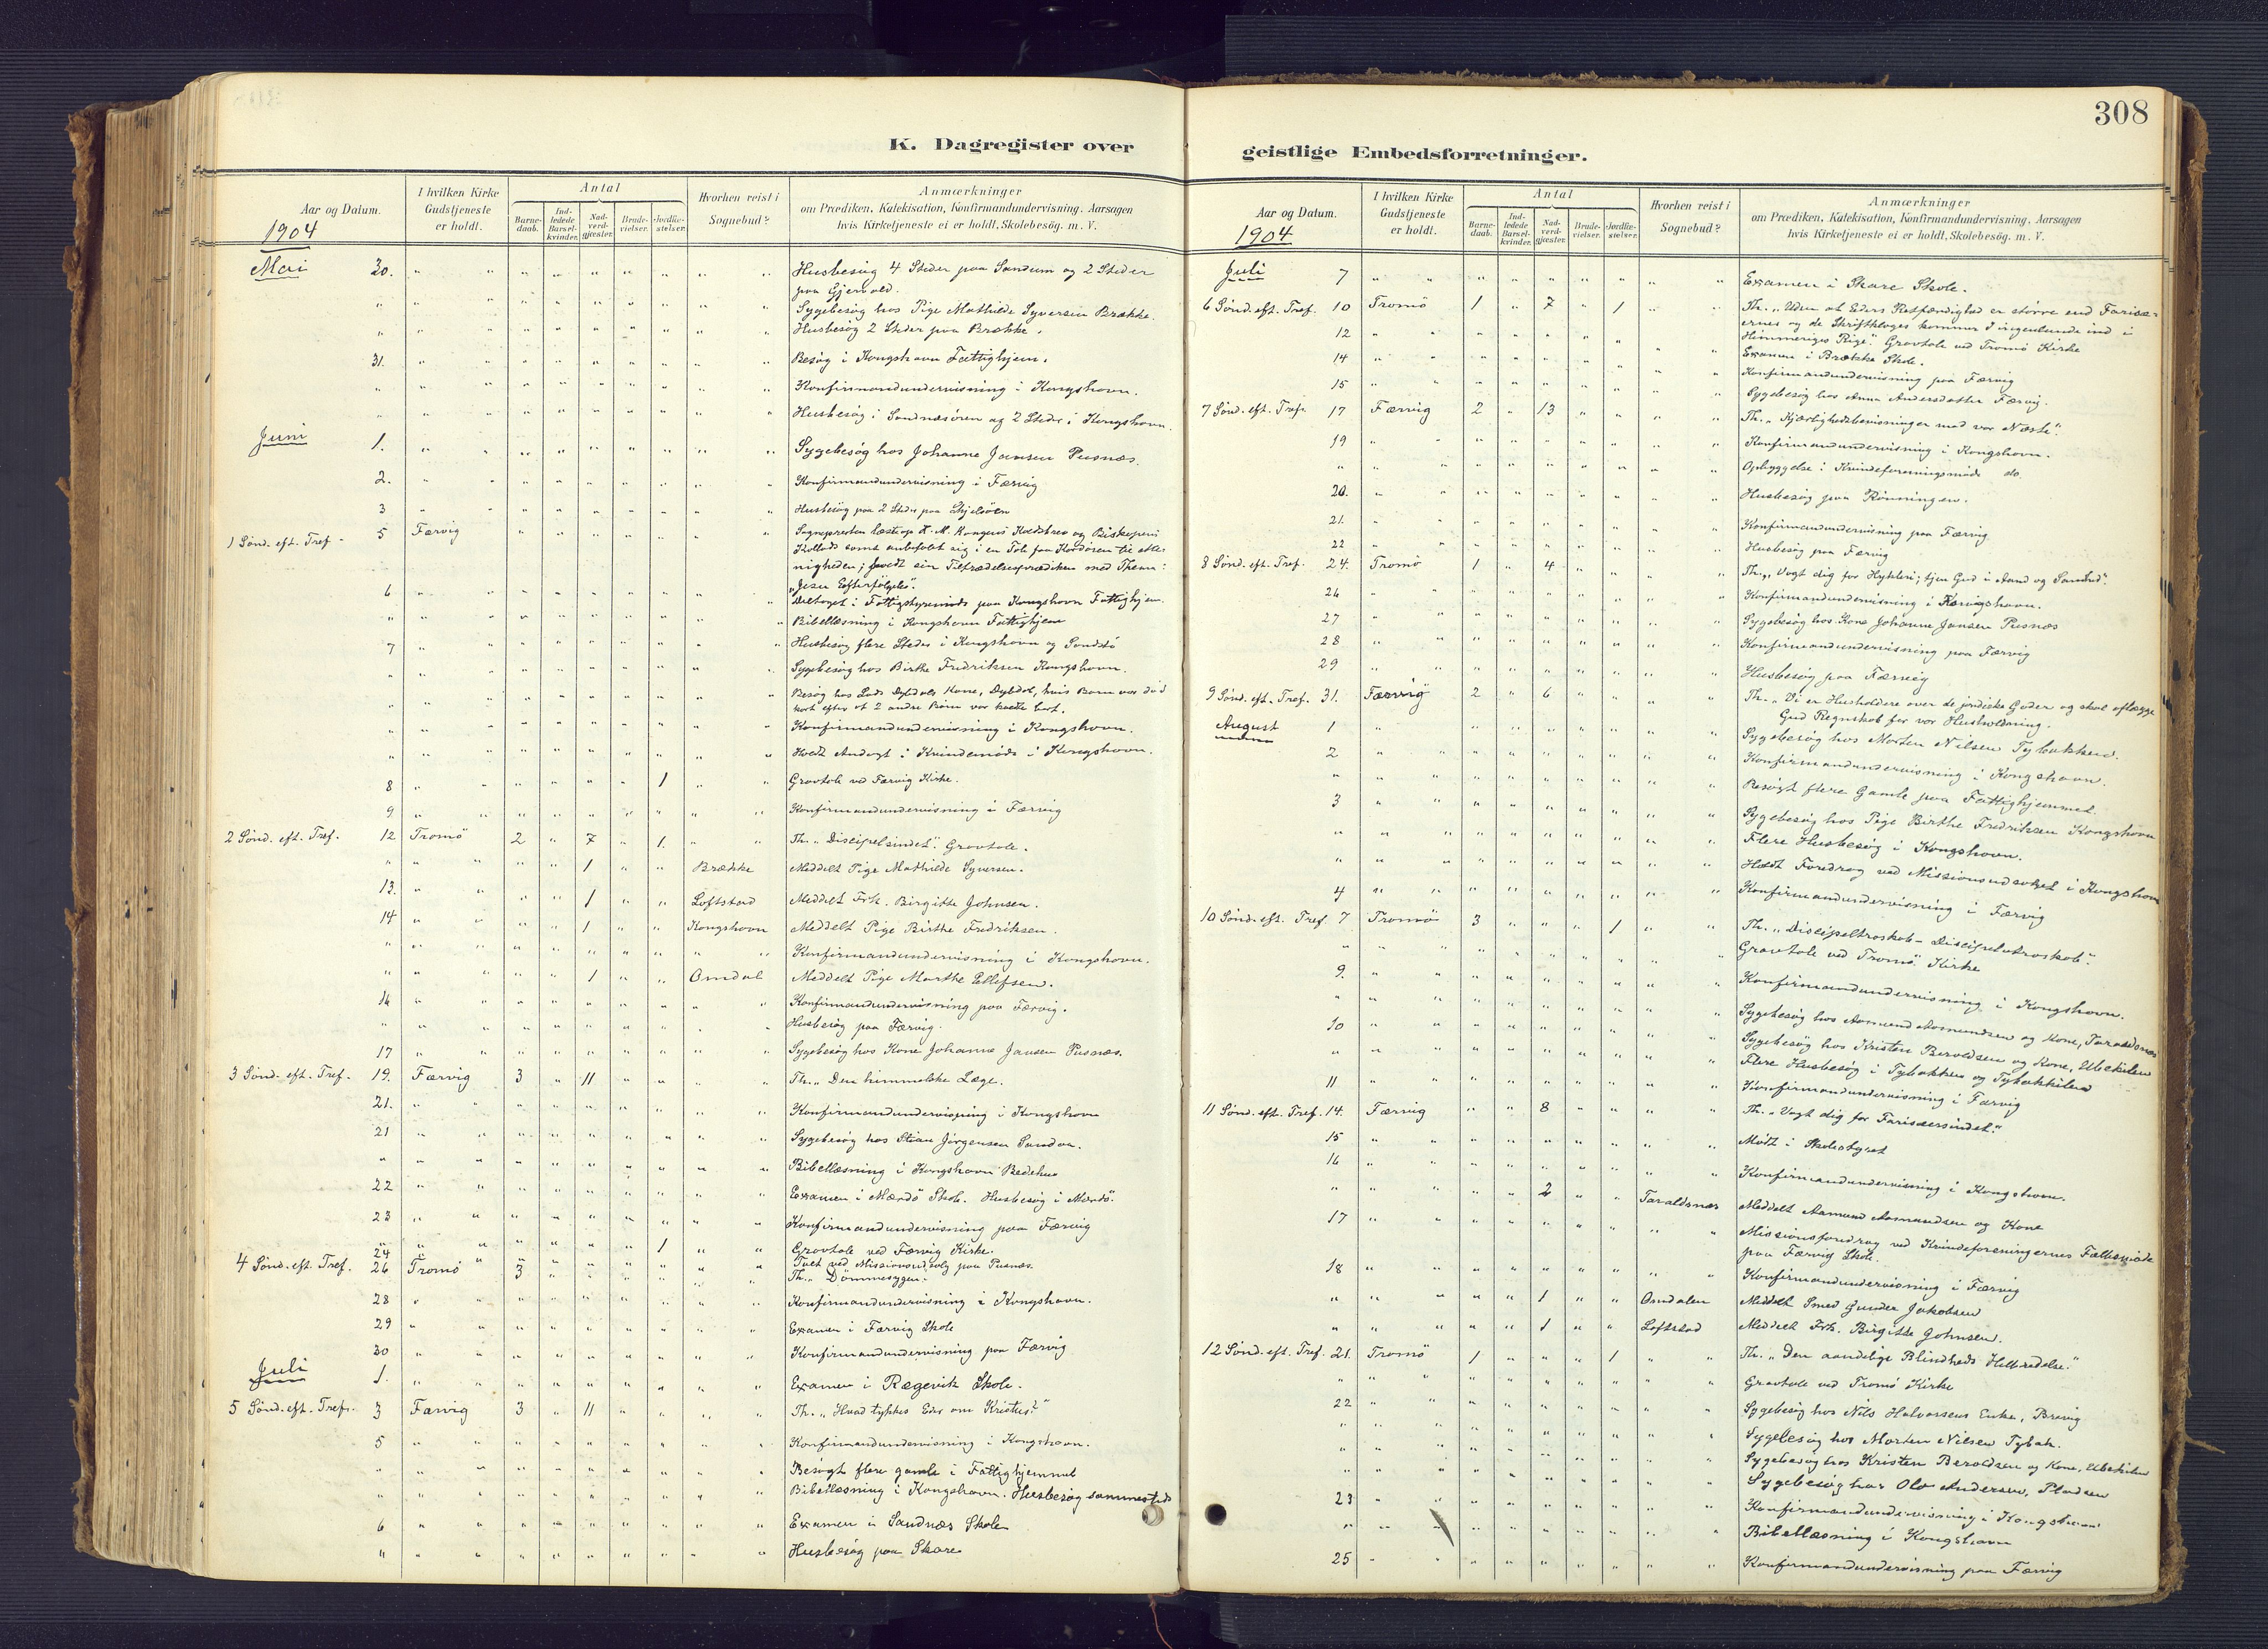 308
K. Dagregister over
geistlige Embedsforretninger.
Aar og Datum.
I hvilken Kirke
Gudstjeneste
er holdt.
Antal
Barne-
daab.
Ind-
ledede
Barsel-
kvinder.
Nad-
verd-
gjester.
Brude-
vielser.
Jordfæ-
stelser.
Hvorhen reist i
Sognebud?
Anmærkninger
om Prædiken, Katekisation, Konfirmandundervisning, Aarsagen
hvis Kirketjeneste ei er holdt, Skolebesøg. m. V.
1904
Mai 30. " " " " " " " " " Husbesøg 4 Steder paa Sandum og 2 Steder
paa Gjervold.
" " " " " " " " " " Sygebesøg hos Pige Mathilde Syversen Brække.
" " " " " " " " " " Husbesøg 2 Steder paa Brække.
31. " " " " " " " " " Besøg i Kongshavn Fattighjem.
" " " " " " " " " " Konfirmandundervisning i Kongshavn.
" " " " " " " " " " Husbesøg i Sandnæsøren og 2 Steder i Kongshavn.
Juni 1. " " " " " " " " " Sygebesøg hos Johanne Jansen Pusnæs.
2. " " " " " " " " " Konfirmandundervisning i Færvig
3 " " " " " " " " " Husbesøg paa 2 Steder paa Skjelsöen
1 Sønd. eft. Tref. 5 Færvig " " " " " " " Sognepresten læste op H. M. Kongens Kaldsbrev og Biskopens
Kollats samt anbefalet sig i en Tale fra Kordøren til
nigheden; holdt sin Tiltrædelsesprædiken med Thema:
"Jesu Efterfölgelse".
6 " " " " " " " " " Deltaget i Fattigstyremöde paa Kongshavn Fattighjem.
" " " " " " " " " " Bibellæsning i Kongshavn Fattighjem
7 " " " " " " " " " Husbesøg flere Steder i Kongshavn og Sandstö
" " " " " " " " " " Sygebesøg hos Birthe Fredriksen Kongshavn.
" " " " " " " " " " Besøg hos Lods Dybdals Kone, Dybdal, hvis Barn var död
kort efter at 2 andre Börn var kaldte bort.
" " " " " " " " " " Konfirmandundervisning i Kongshavn.
" " " " " " " " " " Holdt Andagt i Kvindemöde i Kongshavn.
8 " " " " " " 1 " " Gravtale ved Færvig Kirke.
9 " " " " " " " " " Konfirmandundervisning i Færvig
2 Sønd. eft. Tref. 12 Tromö 2 " 7 " 1. " " Th. "Discipelsindet". Gravtale.
" " " " " 1 " " Brække Meddelt Pige Mathilde Syversen.
13. " " " " 1 " " Loftstad Meddelt Frk. Birgitte Johnsen.
14 " " " " 1 " " Kongshavn Meddelt Pige Birthe Fredriksen.
" " " " " " " " " " Konfirmandundervisning i Kongshavn.
" " " " " 1 " " Omdal Meddelt Pige Marthe Ellefsen.
16 " " " " " " " " " Konfirmandundervisning paa Færvig.
" " " " " " " " " " Husbesøg paa Færvig.
17 " " " " " " " " " Sygebesøg hos Kone Johanne Jansen Pusnæs.
3 Sønd. eft. Tref. 19. Færvig 3 " 11 " " " " Th. "Den himmelske Læge.
21. " " " " " " " " " Konfirmandundervisning i Kongshavn
21 " " " " " " " " " Sygebesøg hos Stian Jörgensen Sandum.
" " " " " " " " " " Bibellæsning i Kongshavn Bedehus
22 " " " " " " " " " Examen i Mærdö Skole. Husbesøg i Mærdö.
23 " " " " " " " " " Konfirmandundervisning paa Færvig
24 " " " " " " 1 " " Gravtale ved Færvig Kirke.
" " " " " " " " " " Talt ved Missionsudsalg paa Pusnæs.
4 Sønd. eft. Tref. 26 Tromö 3 " " " " " " Th. "Dömmesygen".
28 " " " " " " " " " Konfirmandundervisning i Kongshavn.
29 " " " " " " " " " Examen i Færvig Skole
30 " " " " " " " " " Konfirmandundervisning paa Færvig
Juli 1. " " " " " " " " " Examen i Rægevik Skole.
5 Sønd. eft. Tref. 3 Færvig 3 " 11 " " " " Th. "Hvad tykkes Eder om Kristus?"
5 " " " " " " " " " Konfirmandundervisning i Kongshavn.
" " " " " " " " " " Besøgt flere gamle i Fattighjemmet
" " " " " " " " " " Bibellæsning i Kongshavn. Husbesøg sammesteds
6 " " " " " " " " " Examen i Sandnæs Skole
" " " " " " " " " " Husbesøg paa Skare
Aar og Datum.
I hvilken Kirke
Gudstjeneste
er holdt.
Antal
Barne-
daab.
Ind-
ledede
Barsel-
kvinder.
Nad-
verd-
gjester.
Brude-
vielser.
Jordfæ-
stelser.
Hvorhen reist i
Sognebud?
Anmærkninger
om Prædiken, Katekisation, Konfirmandundervisning, Aarsagen
hvis Kirketjeneste ei er holdt, Skolebesøg. m. V.
1904
Juli 7 " " " " " " " " " Examen i Skare Skole.
6 Sønd. eft. Tref. 10 Tromö 1 " 7 " 1 " " Th. "Uden at Eders Retfærdighed er större end Farisæ-
ernes og de Skriftkloges kommer I ingenlunde ind i
Himmeriges Rige". Gravtale ved Tromö Kirke
12 " " " " " " " " " Examen i Brække Skole.
14 " " " " " " " " " Konfirmandundervisning paa Færvig
15 " " " " " " " " " Sygebesøg hos Anna Andersdatter Færvig.
7 Sønd. eft. Tref. 17 Færvig 2 " 13 " " " " Th. "Kjærlighedsbevisningen mod vor Næste".
19 " " " " " " " " " Konfirmandundervisning i Kongshavn.
" " " " " " " " " " Opbyggelse i Kvindeforeningsmöde do.
20. " " " " " " " " " Husbesøg paa Rönningen.
21. " " " " " " " " " Konfirmandundervisning paa Færvig
22 " " " " " " " " " Husbesøg paa Færvig
8 Sønd. eft. Tref. 24. Tromö 1 " 4 " " " " Th. "Vogt dig for Hykleri; tjen Gud i Aand og Sandhed".
26 " " " " " " " " " Konfirmandundervisning i Kongshavn.
27 " " " " " " " " " Sygebesøg hos Kone Johanne Jansen Pusnæs
28 " " " " " " " " " Konfirmandundervisning paa Færvig
29 " " " " " " " " " Husbesøg paa Færvig
9 Sønd. eft. Tref. 31. Færvig 2 " 6 " " " " Th. "Vi er Husholdere over de jordiske Goder og skal aflægge
Gud Regnskab for vor Husholdning.
August 1 " " " " " " " " " Sygebesøg hos Morten Nilsen Tybakken.
2 " " " " " " " " " Konfirmandundervisning i Kongshavn.
" " " " " " " " " " Besögt flere Gamle paa Fattighjemmet
3 " " " " " " " " " Sygebesøg hos Pige Birthe Fredriksen Kongshavn
" " " " " " " " " " Flere Husbesøg i Kongshavn.
" " " " " " " " " " Holdt Foredrag ved Missionsudsalget i Kongshavn
4 " " " " " " " " " Konfirmandundervisning i Færvig
10 Sønd. eft. Tref. 7 Tromö 3 " " " 1 " " Th. "Discipeltroskab – Discipelutroskab".
" " " " " " " " " " Gravtale ved Tromö Kirke
9. " " " " " " " " " Konfirmandundervisning i Kongshavn.
" " " " " " " " " " Sygebesøg hos Aamund Aamundsen og Kone, Taraldsnæs
10 " " " " " " " " " Sygebesøg hos Kristen Beroldsen og Kone, Ubekilen
" " " " " " " " " " Flere Husbesøg i Tybakken og Tybakkilen
11 " " " " " " " " " Konfirmandundervisning i Færvig
11 Sønd. eft. Tref. 14. Færvig " " 8 " " " " Th. "Vogt dig for Farisæersindet."
15 " " " " " " " " " Mödt i Skolestyret
16 " " " " " " " " " Konfirmandundervisning i Kongshavn.
" " " " " 2 " " Taraldsnæs Meddelt Aamund Aamundsen og Kone
17 " " " " " " " " " Missionsforedrag ved Kvindeforeningernes Fællesmöde
paa Færvig Skole.
18 " " " " " " " " " Konfirmandundervisning i Færvig
" " " " " 1 " " Omdalen Meddelt Smed Gunder Jakobsen
" " " " " 1 " " Loftstad Meddelt Frk. Birgitte Johnsen.
12 Sønd. eft. Tref. 21. Tromö 1 " " " 1 " " Th. "Den aandelige Blindheds Helbredelse."
" " " " " " " " " " Gravtale ved Tromö Kirke
22 " " " " " " " " " Sygebesøg hos Nils Halvorsens Enke, Brevig
" " " " " " " " " " Sygebesøg hos Morten Nilsen Tybak.
" " " " " " " " " " Sygebesøg hos Kristen Beroldsen og Kone, Ubekilen
" " " " " " " " " " Sygebesøg hos Ole Andersen, Pladsen
23 " " " " " " " " " Konfirmandundervisning i Kongshavn
" " " " " " " " " " Bibellæsning i Kongshavn
25 " " " " " " " " " Konfirmandundervisning paa Færvig